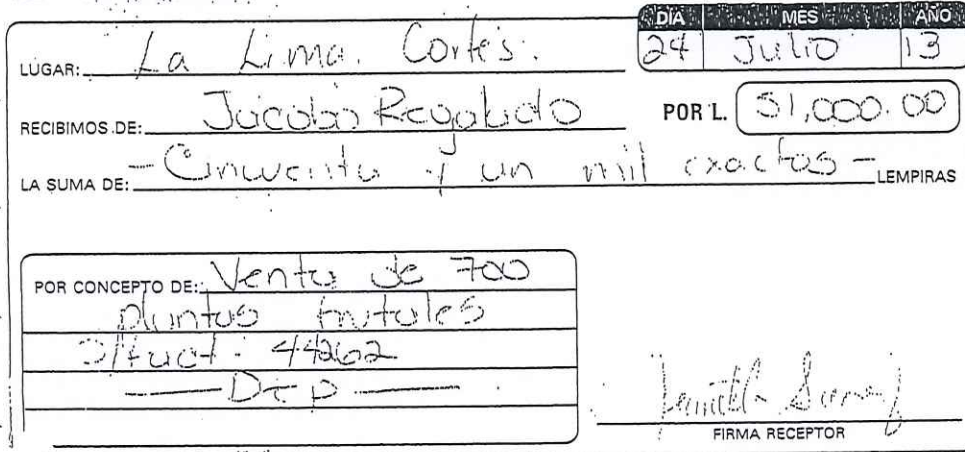 DIA MES AÑO
LUGAR: La Lima. Cortés. 24 Julio 13
RECIBIMOS DE: Jacobo Regalado POR L. 51,000.00
LA SUMA DE: - Cincuenta y un mil exactos - LEMPIRAS
POR CONCEPTO DE: Venta de 700
plantas frutales
s/fact. 44262
— Dep —
FIRMA RECEPTOR